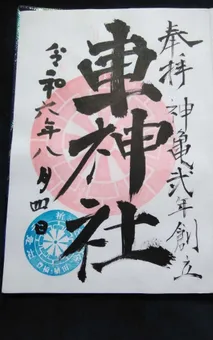 奉拝 神亀弐年創立
車神社
令和六年八月四日